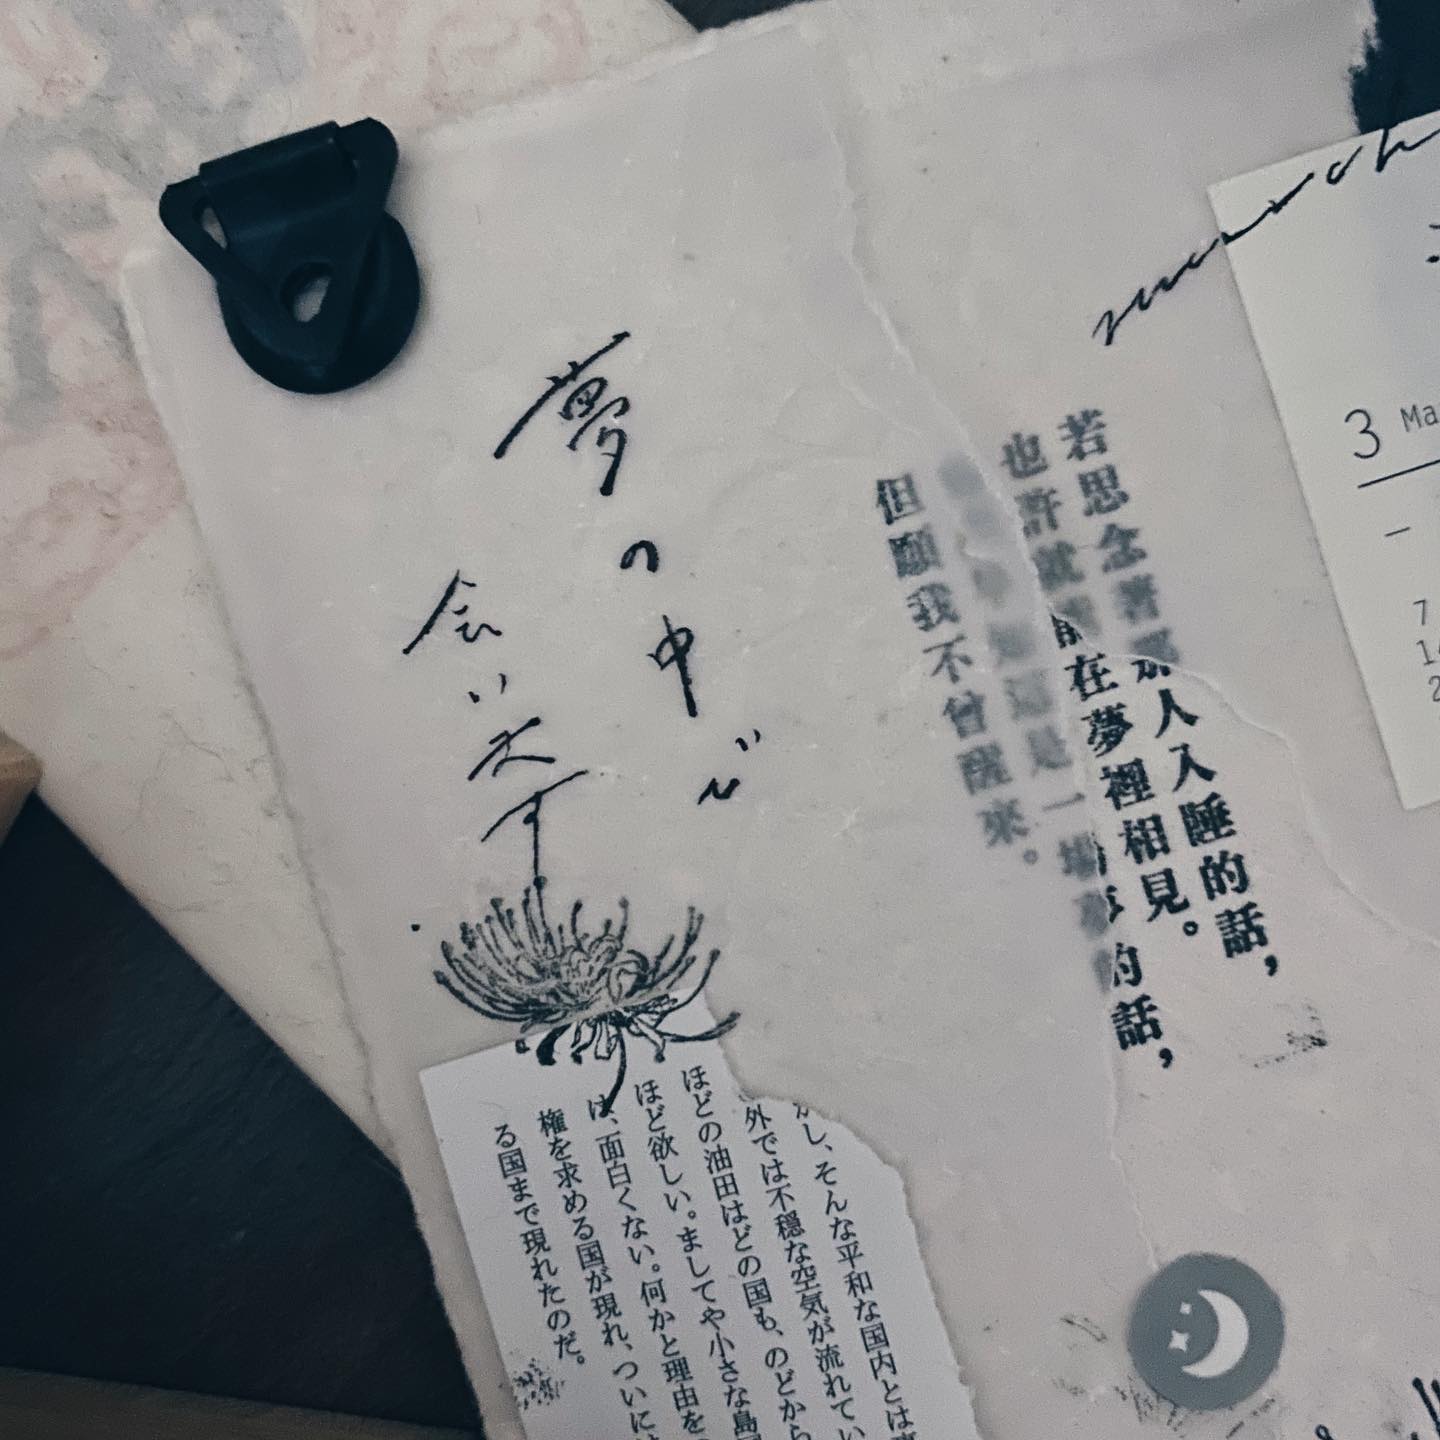 march
3 Ma
7
若思念著那人入睡的話，
也許就能在夢裡相見。
是一場夢的話，
但願我不曾醒來。
夢の中で
会い
し、そんな平和な国内とは
外では不穏な空気が流れてい
ほどの油田はどの国も、のどから
ほど欲しい。ましてや小さな島
は、面白くない。何かと理由を
権を求める国が現れ、ついに
る国まで現れたのだ。